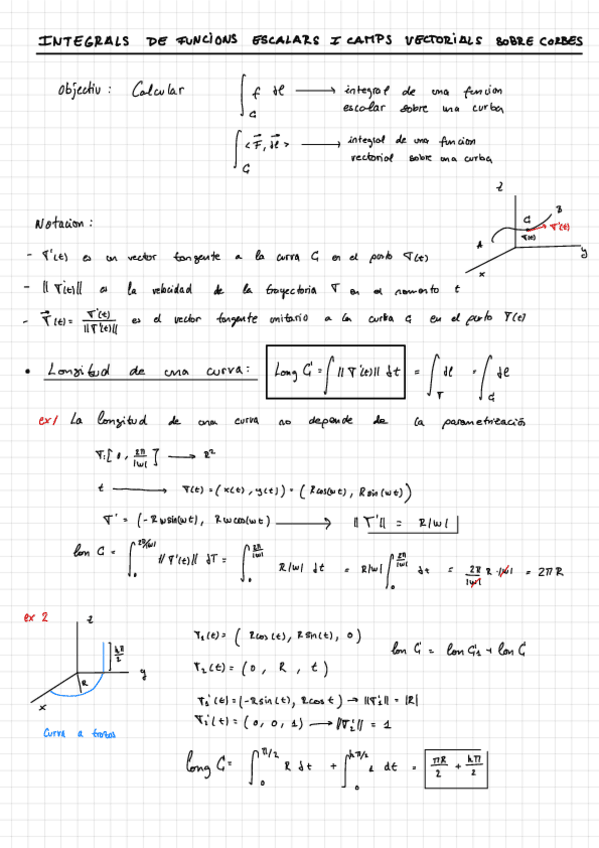 INTEGRALS DE FUNCIONS ESCALARS I CAMPS VECTORIALS SOBRE CORBES
Objectiu : Calcular ∫_G f dl ⟶ integral de una funcion
escalar sobre una curba
∫_G <F⃗, dl⃗> ⟶ integral de una funcion
vectorial sobre una curba
z
G B
A σ(t) σ'(t)
y
x
Notacion :
- σ'(t) es un vector tangente a la curva G en el punto σ(t)
- ||σ'(t)|| es la velocidad de la trayectoria σ en el momento t
- T⃗(t) = σ'(t) / ||σ'(t)|| es el vector tangente unitario a la curba G en el punto σ(t)
• Longitud de una curva : Long G = ∫ ||σ'(t)|| dt = ∫_σ dl = ∫_G dl
ex/ La longitud de una curva no depende de la parametrización
σ:[0, 2π/|w|] ⟶ R²
t ⟶ σ(t) = (x(t), y(t)) = (Rcos(wt), Rsin(wt))
σ' = (-Rwsin(wt), Rwcos(wt)) ⟶ ||σ'|| = R|w|
lon G = ∫_0^{2π/|w|} ||σ'(t)|| dt = ∫_0^{2π/|w|} R|w| dt = R|w| ∫_0^{2π/|w|} dt = 2π/|w| R·|w| = 2πR
ex 2
z
hπ/2
y
R
x
Curva a trozos
σ₁(t) = (Rcos(t), Rsin(t), 0)
lon G = lon G₁ + lon G
σ₂(t) = (0, R, t)
σ₁'(t) = (-Rsin(t), Rcos t) → ||σ₁'|| = |R|
σ₂'(t) = (0, 0, 1) ⟶ ||σ₂'|| = 1
long G = ∫_0^{π/2} R dt + ∫_0^{hπ/2} 1 dt = πR/2 + hπ/2